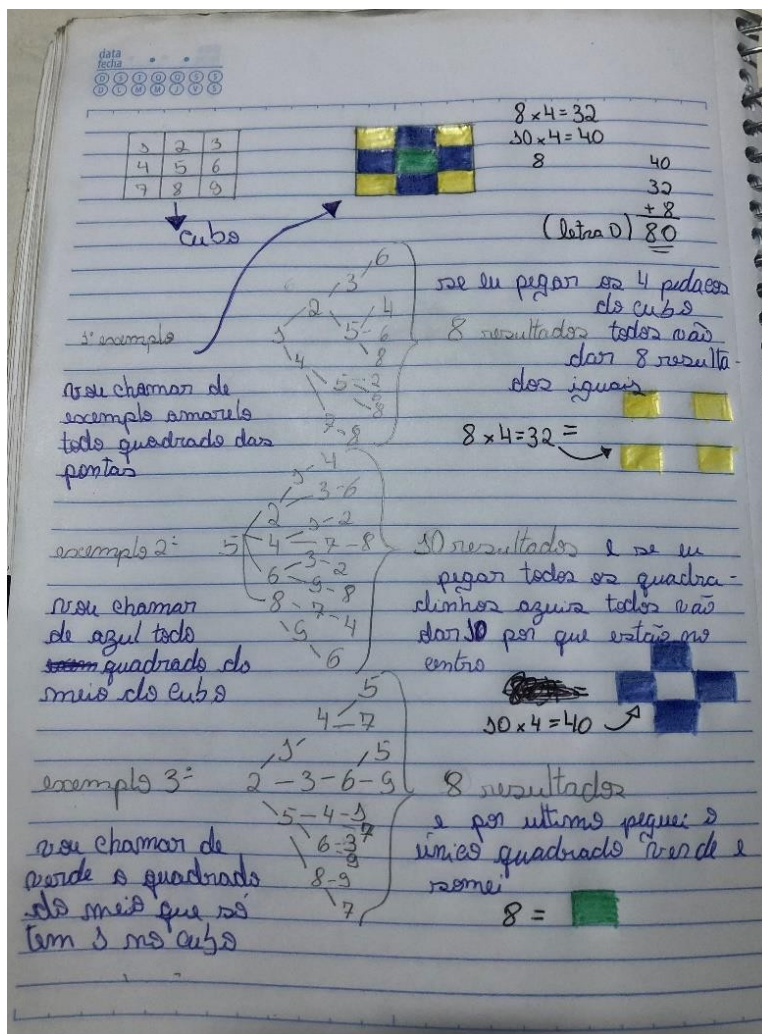 data
fecha
D S T Q Q S S
D L M M J V S
1 2 3
4 5 6
7 8 9
cubo
8 x 4 = 32
10 x 4 = 40
8
40
32
+ 8
(letra D) 80
1º exemplo
vou chamar de
exemplo amarelo
todo quadrado das
pontas
6
3
2 4
1 5 - 6
8
4 5 - 2
8
7 - 8
se eu pegar os 4 pedaços
do cubo
8 resultados todos vão
dar 8 resulta-
dos iguais
8 x 4 = 32 =
exemplo 2º
vou chamar
de azul todo
quadrado do
meio do cubo
1 - 4
2 3 - 6
1 - 2
5 4 7 - 8
6 3 - 2
9 - 8
8 - 7 - 4
9
6
10 resultados e se eu
pegar todos os quadra-
dinhos azuis todos vão
dar 10 por que estão no
centro
10 x 4 = 40
exemplo 3º
vou chamar de
verde o quadrado
do meio que só
tem 1 no cubo
5
4 - 7
1 5
2 - 3 - 6 - 9
5 - 4 - 1
7
6 - 3
9
8 - 9
7
8 resultados
e por ultimo peguei o
único quadrado verde e
somei
8 =